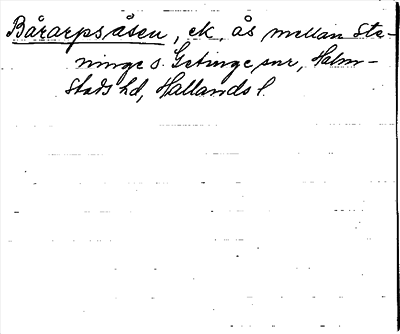 Bårarpsåsen, ek, ås mellan Ste-
ninge o. Getinge snr, Halm-
stads hd, Hallands l.